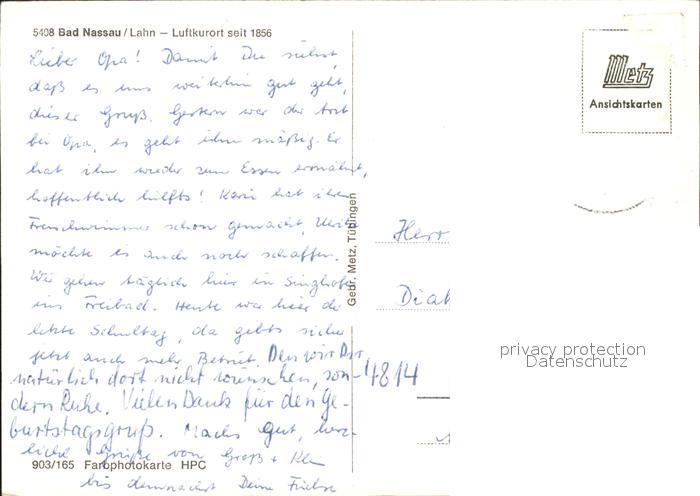 5408 Bad Nassau / Lahn – Luftkurort seit 1856
Lieber Opa! Damit Du siehst,
daß es uns weiterhin gut geht,
dieser Gruß. Gestern war der Arzt
bei Opa, es geht ihm mäßig. Er
hat ihn wieder zum Essen ermahnt,
hoffentlich hilfts! Karin hat ihren
Freischwimmer schon gemacht,
möchte es auch noch schaffen.
Wir gehen täglich hier in Singhofen
ins Freibad. Heute war hier der
letzte Schultag, da gebts sicher
jetzt auch mehr Betrieb. Den wir Dir
natürlich dort nicht wünschen, son-
dern Ruhe. Vielen Dank für den Ge-
burtstagsgruß. Machs gut, herz-
liche Grüße von Groß + Klein
bis demnächst Deine
903/165 Farbphotokarte HPC
Gebr. Metz, Tübingen
Metz
Ansichtskarten
Herr
Diak
4814
privacy protection
Datenschutz